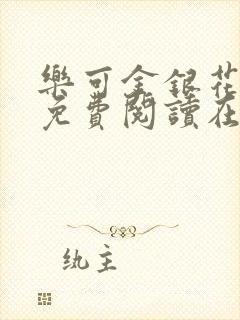 樂可金銀花
免費閱讀在
紈主